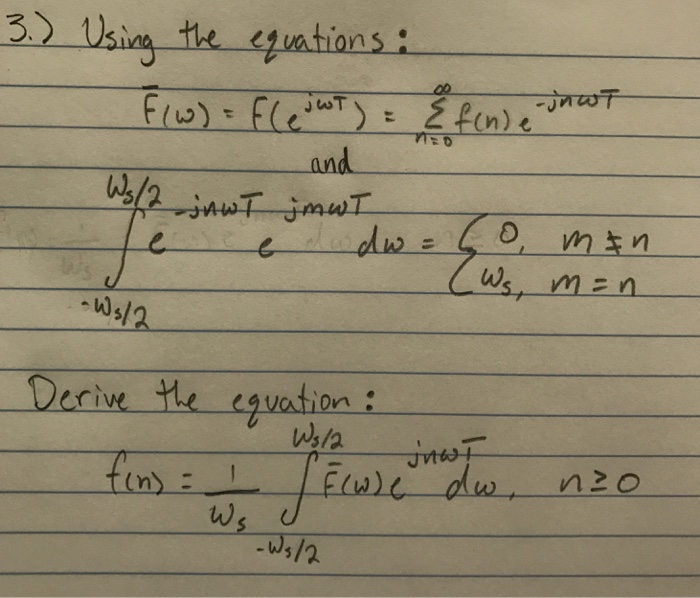 3.) Using the equations:
F̅(ω) = F(e^{jωT}) = ∑_{n=0}^{∞} f(n) e^{-jnωT}
and
∫_{-ωs/2}^{ωs/2} e^{-jnωT} e^{jmωT} dω = { 0, m ≠ n
ωs, m = n
Derive the equation:
f(n) = 1/ωs ∫_{-ωs/2}^{ωs/2} F̅(ω) e^{jnωT} dω, n ≥ 0